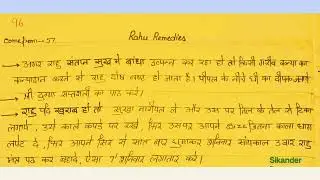 96
Rahu Remedies
Come from - 57
→ अगर राहु संतान सुख में बाधा उत्पन्न कर रहा हो तो किसी गरीब कन्या का
कन्यादान करने से राहु दोष नष्ट हो जाता है। पीपल के नीचे घी का दीपक जलाएं
श्री दुर्गा सप्तशती का पाठ करें।
→ राहु यदि खराब हो तो सूखा नारियल लें और उस पर तिल के तेल से टिका
लगाएं, उसे काले कपडे पर रखें, फिर उसपर आपने size जितना काला धागा
लपेट दें, फिर आपने सिर से सात बार घुमाकर शनिवार संध्याकाल उआर राहु
मंत्र पढ कर बहादें, ऐसा 7 शनिवार लगातार करें।
Sikander